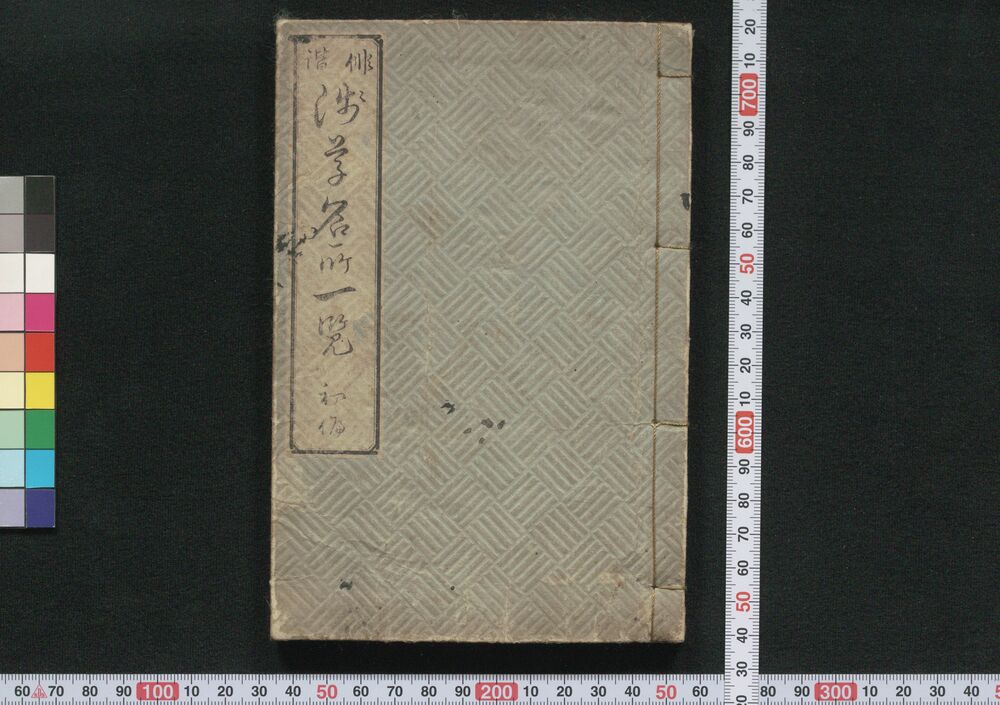 俳諧
浅草名所一覧
初編
20 10 700 90 80 70 60 50 40 30 20 10 600 90 80 70 60 50 40 30 20
60 70 80 90 100 10 20 30 40 50 60 70 80 90 200 10 20 30 40 50 60 80 90 300 10 20 30 40